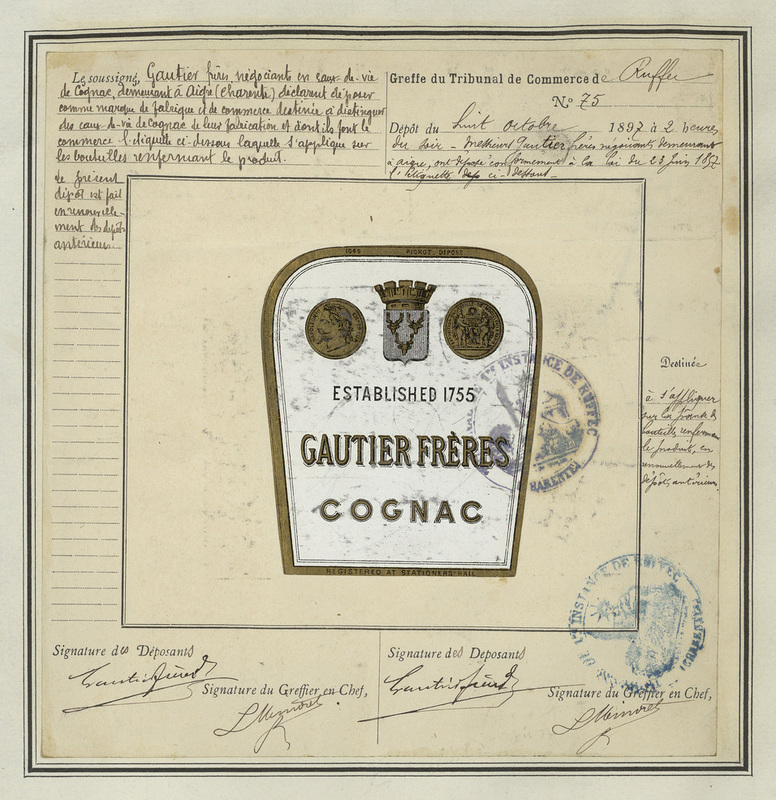 Les soussignés, Gautier frères, négociants en eaux-de-vie
de Cognac, demeurant à Aigre (Charente) déclarent déposer
comme marque de fabrique et de commerce destinée à distinguer
des eaux-de-vie de Cognac de leur fabrication et dont ils font le
commerce l'étiquette ci-dessous laquelle s'applique sur
les bouteilles renfermant le produit.
Le présent
dépôt est fait
en renouvelle-
ment des dépôts
antérieurs
Greffe du Tribunal de Commerce de Ruffec
N° 75
Dépôt du huit octobre 1897 à 2 heures
du soir - Messieurs Gautier frères négociants demeurant
à aigre, ont déposé conformément à la loi du 23 juin 1857
l'étiquette ci-dessous
1066 PICHOT, DÉPOSÉ
ESTABLISHED 1755
GAUTIER FRÈRES
COGNAC
REGISTERED AT STATIONERS-HALL
INSTANCE DE RUFFEC
Destinée
à s'appliquer
sur la panse des
bouteilles renfermant
le produit, en
renouvellement des
dépôts antérieurs.
INSTANCE DE RUFFEC
Signature des Déposants
Gautier frères
Signature du Greffier en Chef,
Signature des Déposants
Gautier frères
Signature du Greffier en Chef,